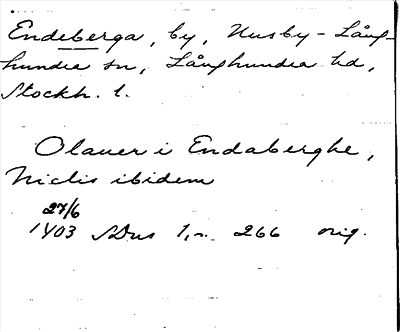 Endeberga, by, Husby-Lång-
hundra sn, Långhundra hd,
Stockh. l.
Olauer i Endaberghe,
Niclis ibidem
27/6
1403 SDns 1, n. 266 orig.